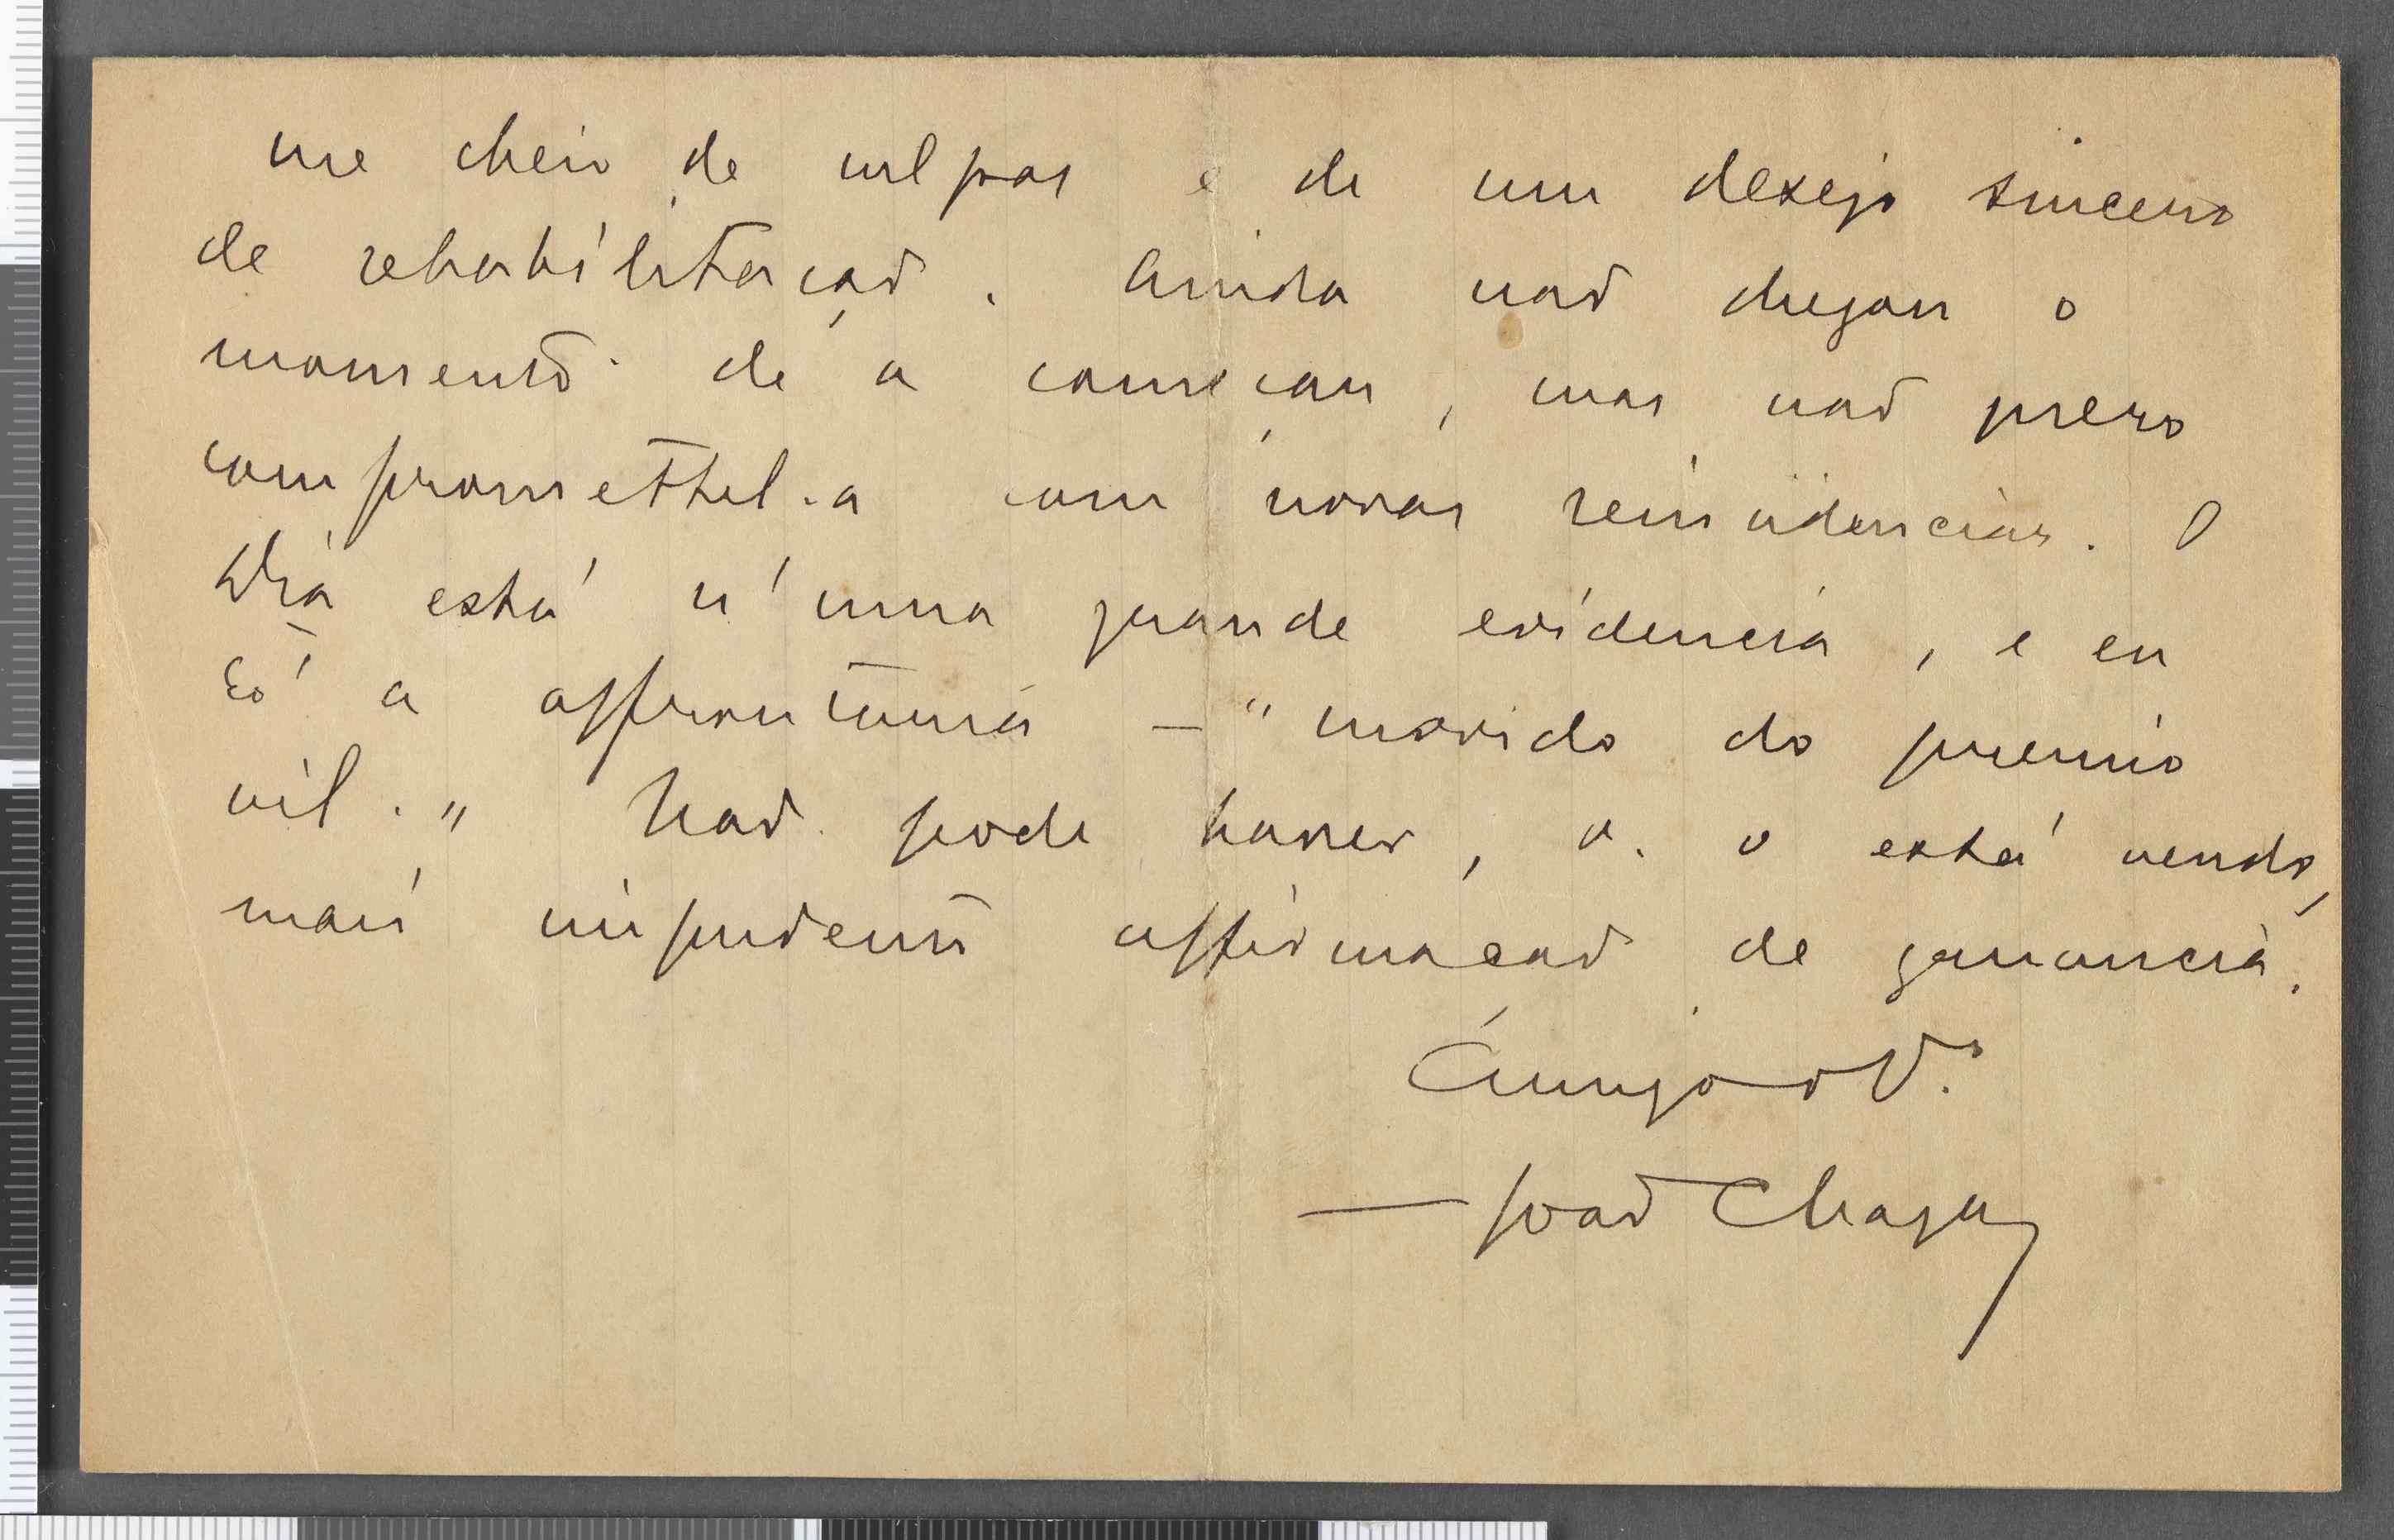 me cheio de culpas e de um desejo sincero
de rehabilitação. Ainda não chegou o
momento de a começar, mas não quero
comprometttel-a com novas reincidencias. O
Dia está n'uma grande evidencia, e eu
só a affrontaria — "movido do premio
vil." Não pode haver, v. o está vendo,
mais impudente affirmação de ganancia.
Amigo e V.or
— João Chagas